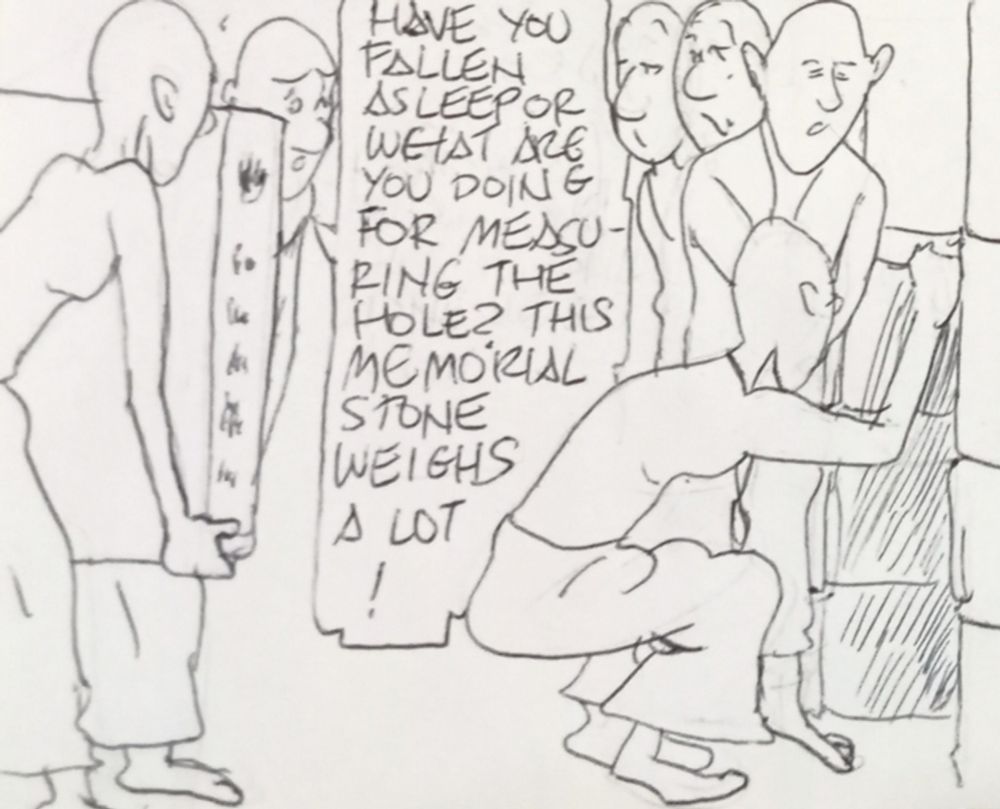 HAVE YOU
FALLEN
ASLEEP OR
WEHAT ARE
YOU DOING
FOR MEASU-
RING THE
HOLE? THIS
MEMORIAL
STONE
WEIGHS
A LOT
!